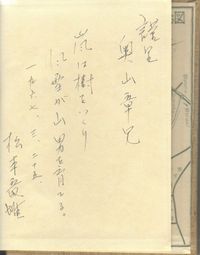 謹呈
奥山章兄
嵐は樹をつくり
風雪が山男を育てる。
一九六七、三、二十五、
松本
図